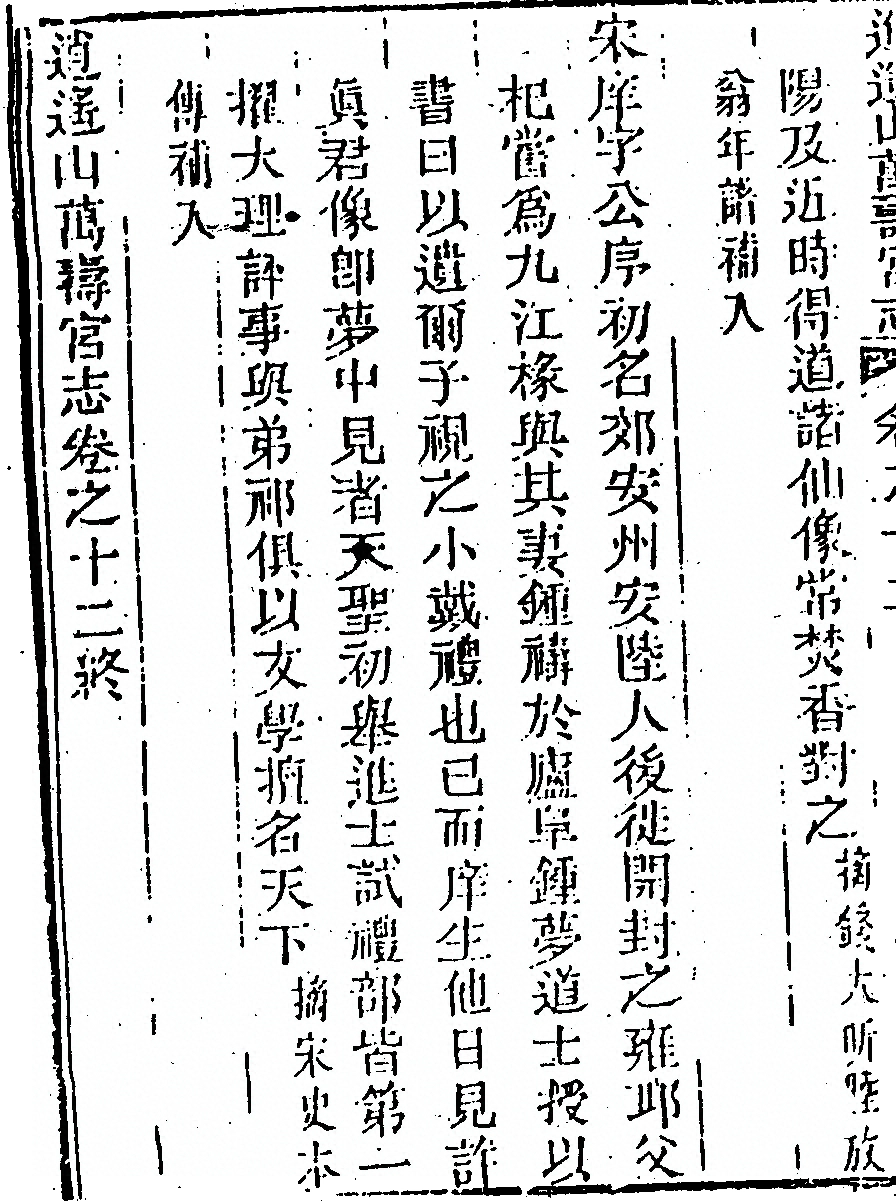 陽及近時得道諸仙像常焚香對之摘錢大昕陸放
翁年譜補入
宋庠字公序初名郊安州安陸人後徙開封之雍邱父
杞嘗爲九江椽與其妻鍾禱於廬阜鍾夢道士授以
書曰以遺爾子視之小戴禮也已而庠生他日見許
眞君像卽夢中見者天聖初舉進士試禮部皆第一
擢大理評事與弟祁俱以文學擅名天下摘宋史本
傳補入
逍遙山萬壽宮志卷之十二終